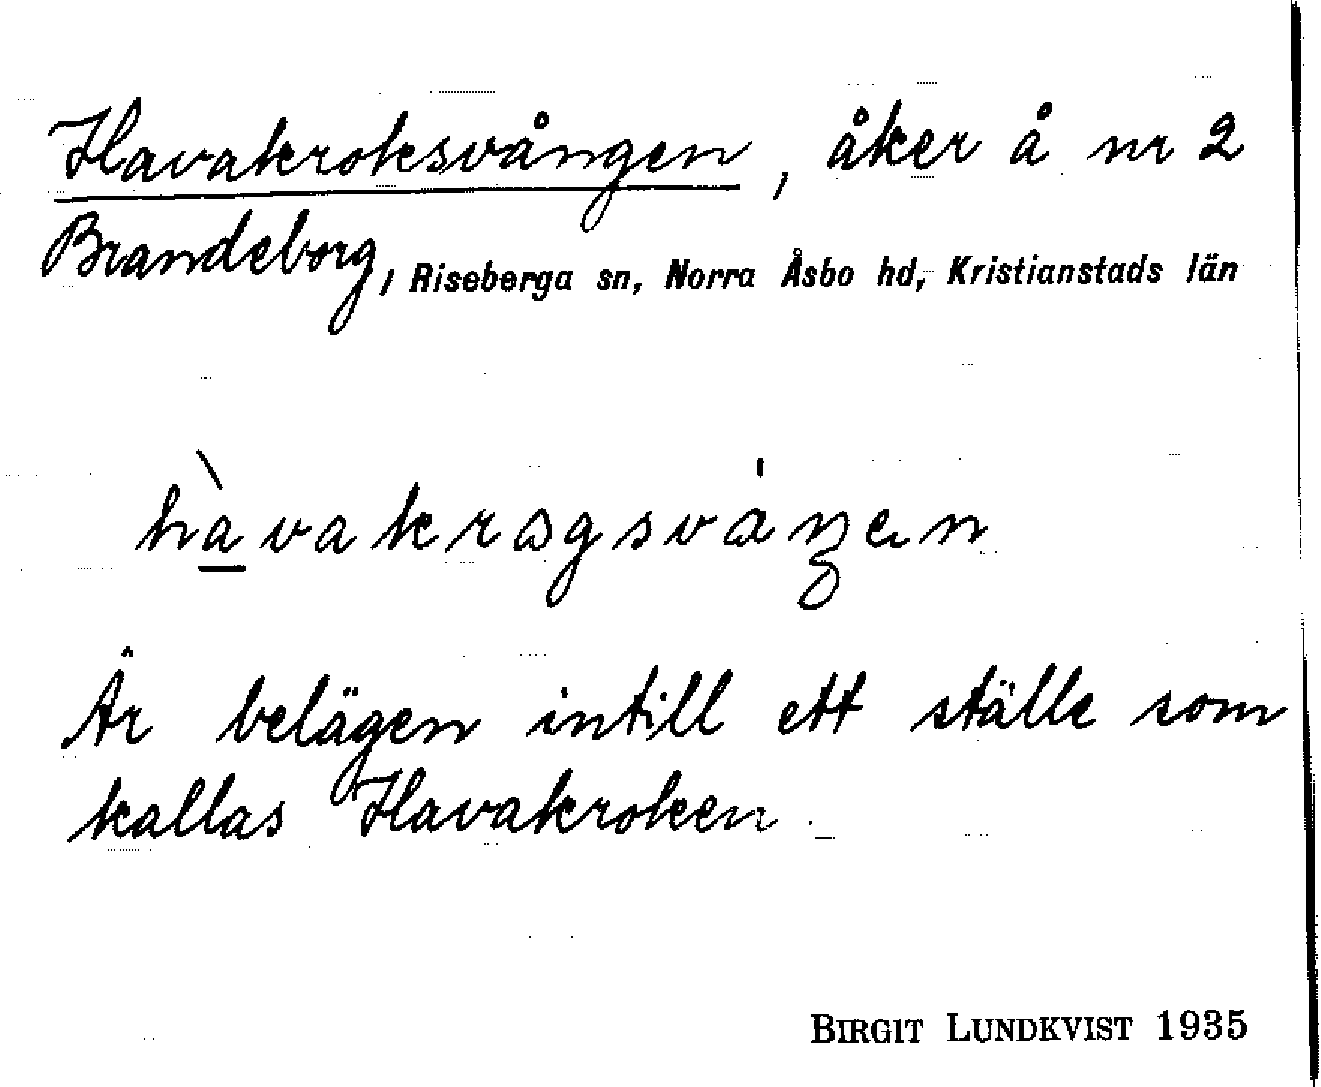 Havakroksvången, åker å nr 2
Brandeborg, Riseberga sn, Norra Åsbo hd, Kristianstads län
hàvakrɔgsváŋen
Är belägen intill ett ställe som
kallas Havakroken.
BIRGIT LUNDKVIST 1935